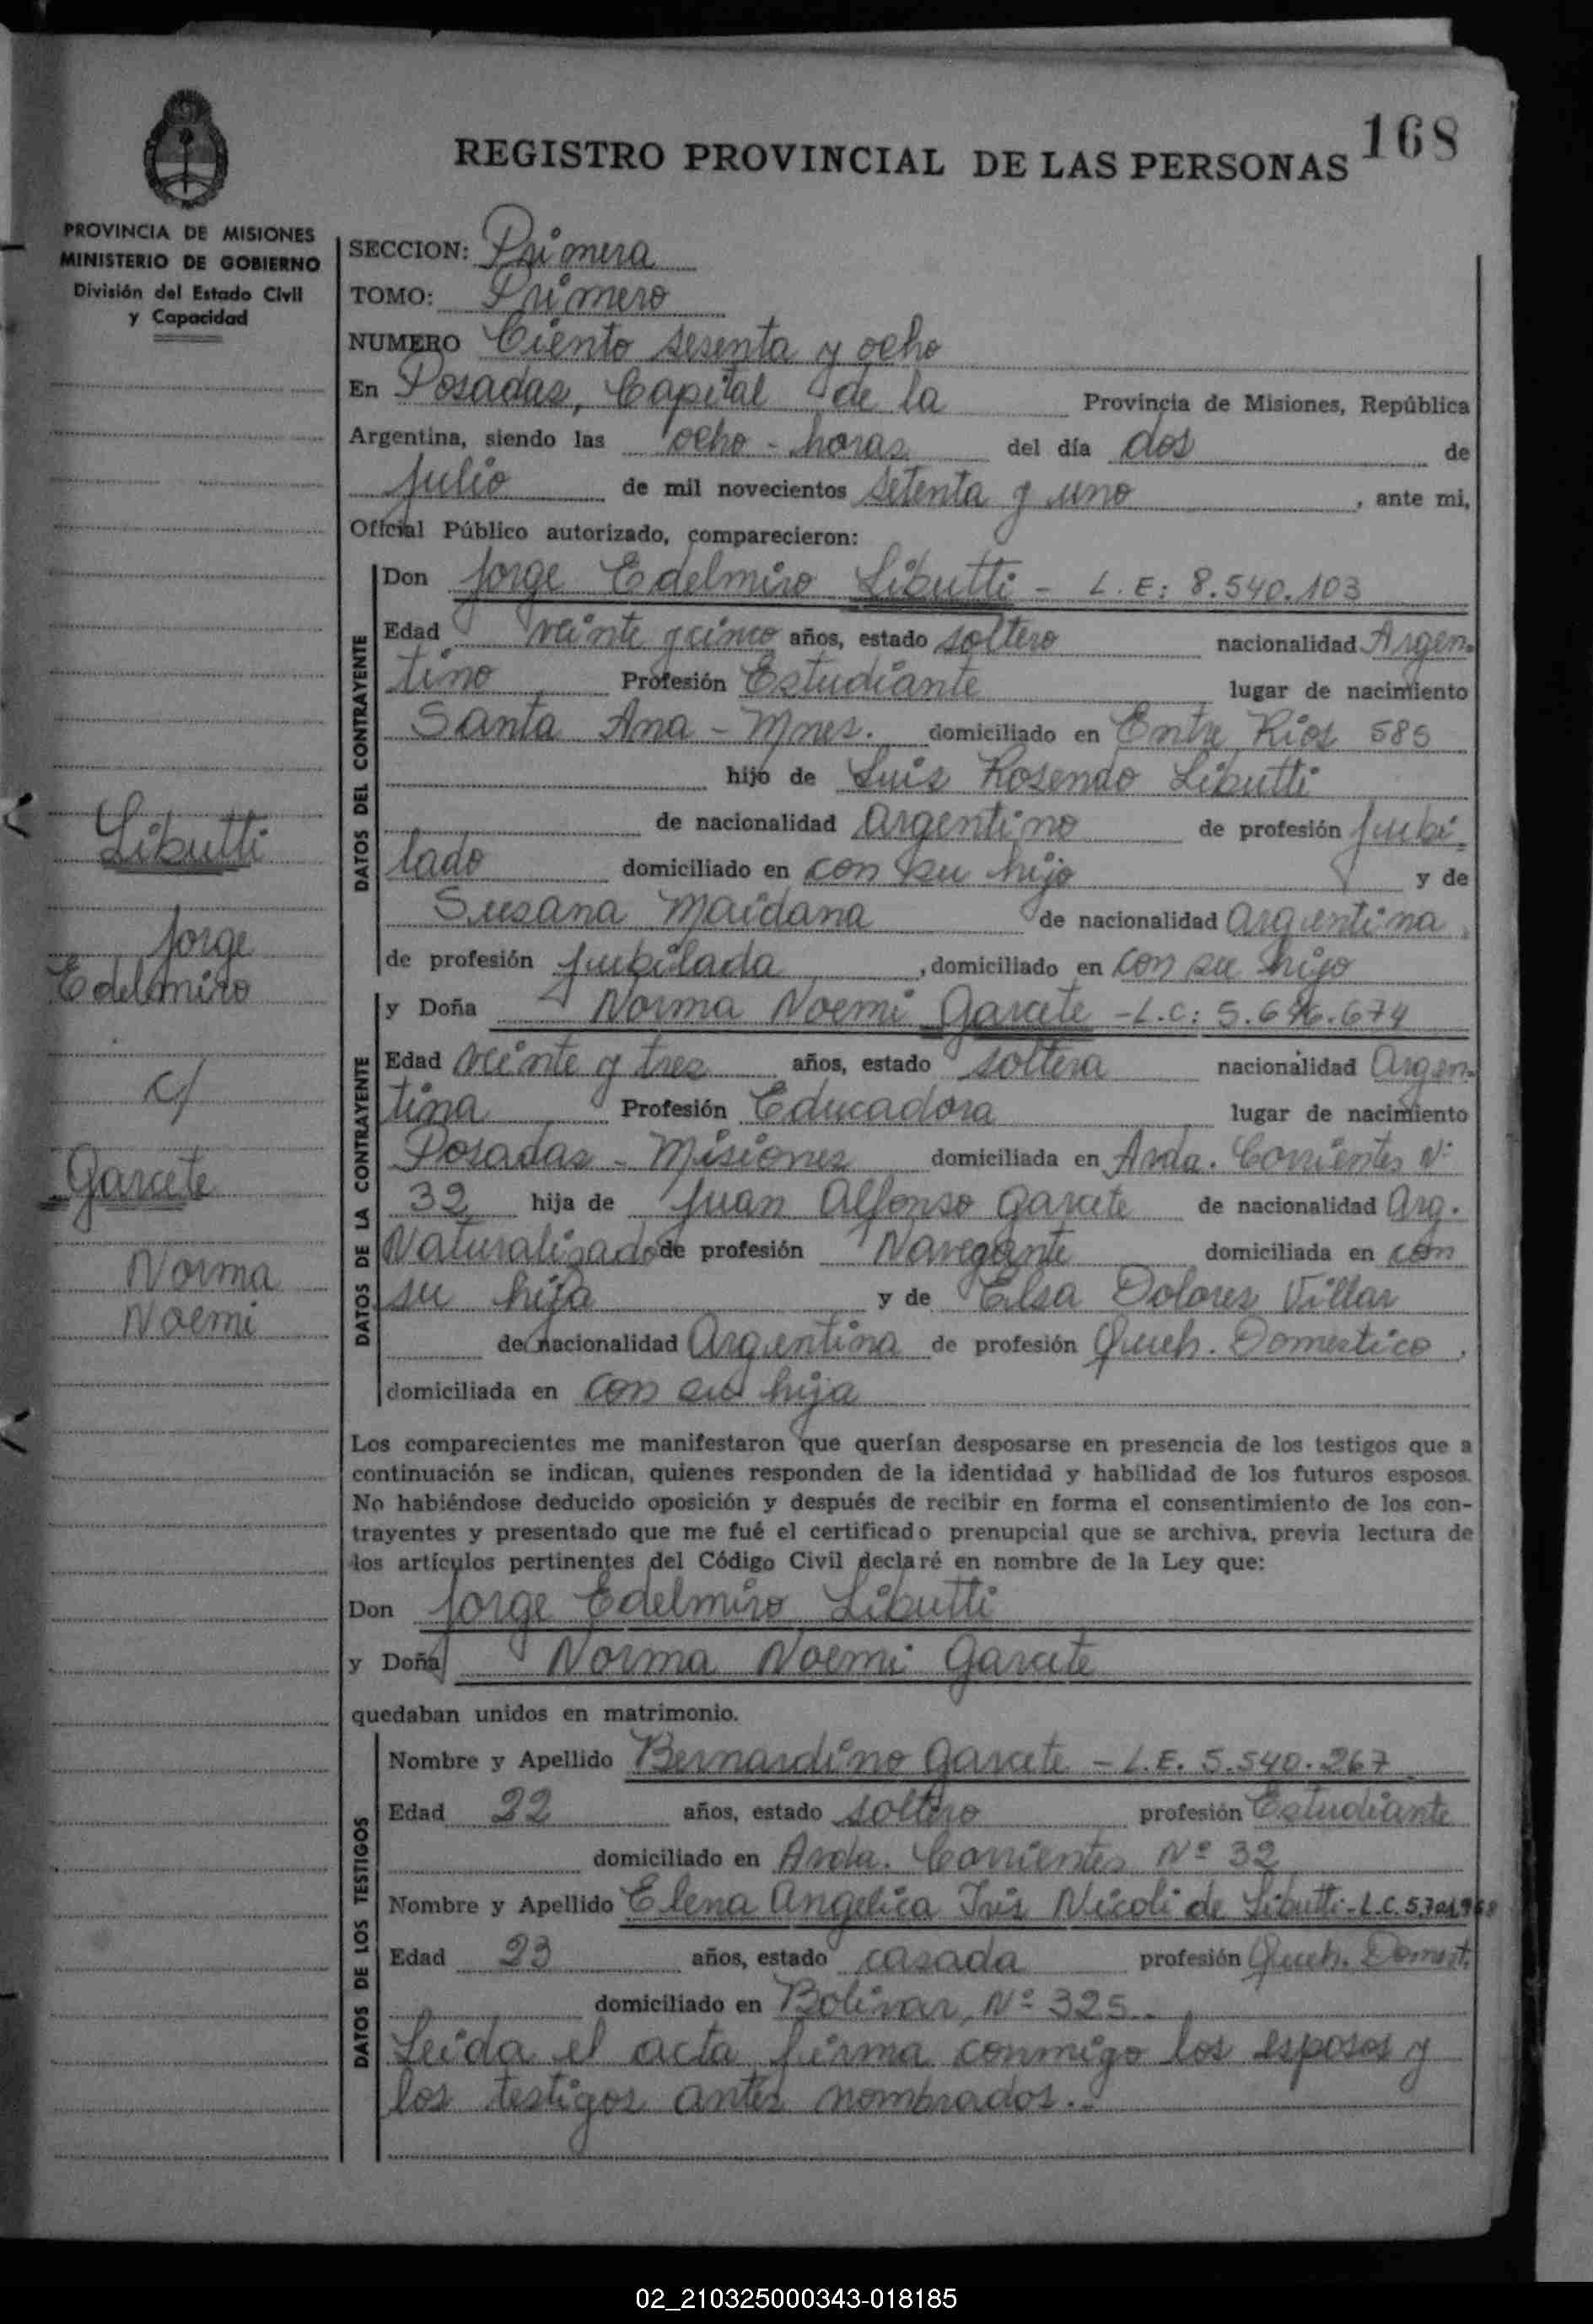 168
REGISTRO PROVINCIAL DE LAS PERSONAS
PROVINCIA DE MISIONES
MINISTERIO DE GOBIERNO
División del Estado Civil
y Capacidad
SECCION: Primera
TOMO: Primero
NUMERO Ciento sesenta y ocho
En Posadas, Capital de la Provincia de Misiones, República
Argentina, siendo las ocho - horas del día dos de
Julio de mil novecientos setenta y uno, ante mi,
Oficial Público autorizado, comparecieron:
DATOS DEL CONTRAYENTE
Don Jorge Edelmiro Libutti - L.E: 8.540.103
Edad veinte y cinco años, estado soltero nacionalidad Argen-
tino Profesión Estudiante lugar de nacimiento
Santa Ana - Mnes. domiciliado en Entre Rios 585
hijo de Luis Rosendo Libutti
de nacionalidad Argentino de profesión Jubi-
lado domiciliado en con su hijo y de
Susana Maidana de nacionalidad Argentina
de profesión Jubilada, domiciliado en con su hijo
DATOS DE LA CONTRAYENTE
y Doña Norma Noemi Garcete - L.C: 5.676.674
Edad veinte y tres años, estado soltera nacionalidad Argen-
tina Profesión Educadora lugar de nacimiento
Posadas - Misiones domiciliada en Avda. Corrientes N°
32 hija de Juan Alfonso Garcete de nacionalidad Arg.
Naturalizado de profesión Navegante domiciliada en con
su hija y de Elsa Dolores Villar
de nacionalidad Argentina de profesión Queh. Domestico,
domiciliada en con su hija
Los comparecientes me manifestaron que querían desposarse en presencia de los testigos que a
continuación se indican, quienes responden de la identidad y habilidad de los futuros esposos.
No habiéndose deducido oposición y después de recibir en forma el consentimiento de los con-
trayentes y presentado que me fué el certificado prenupcial que se archiva, previa lectura de
los artículos pertinentes del Código Civil declaré en nombre de la Ley que:
Don Jorge Edelmiro Libutti
y Doña Norma Noemi Garcete
quedaban unidos en matrimonio.
DATOS DE LOS TESTIGOS
Nombre y Apellido Bernardino Garcete - L.E. 5.540.267
Edad 22 años, estado soltero profesión Estudiante
domiciliado en Avda. Corrientes Nº 32
Nombre y Apellido Elena Angelica Iris Nicoli de Libutti - L.C.
Edad 23 años, estado casada profesión Queh. Domest.
domiciliado en Bolivar, Nº 325.
Leida el acta firma conmigo los esposos y
los testigos antes nombrados.-
Libutti
Jorge
Edelmiro
c/
Garcete
Norma
Noemi
02_210325000343-018185